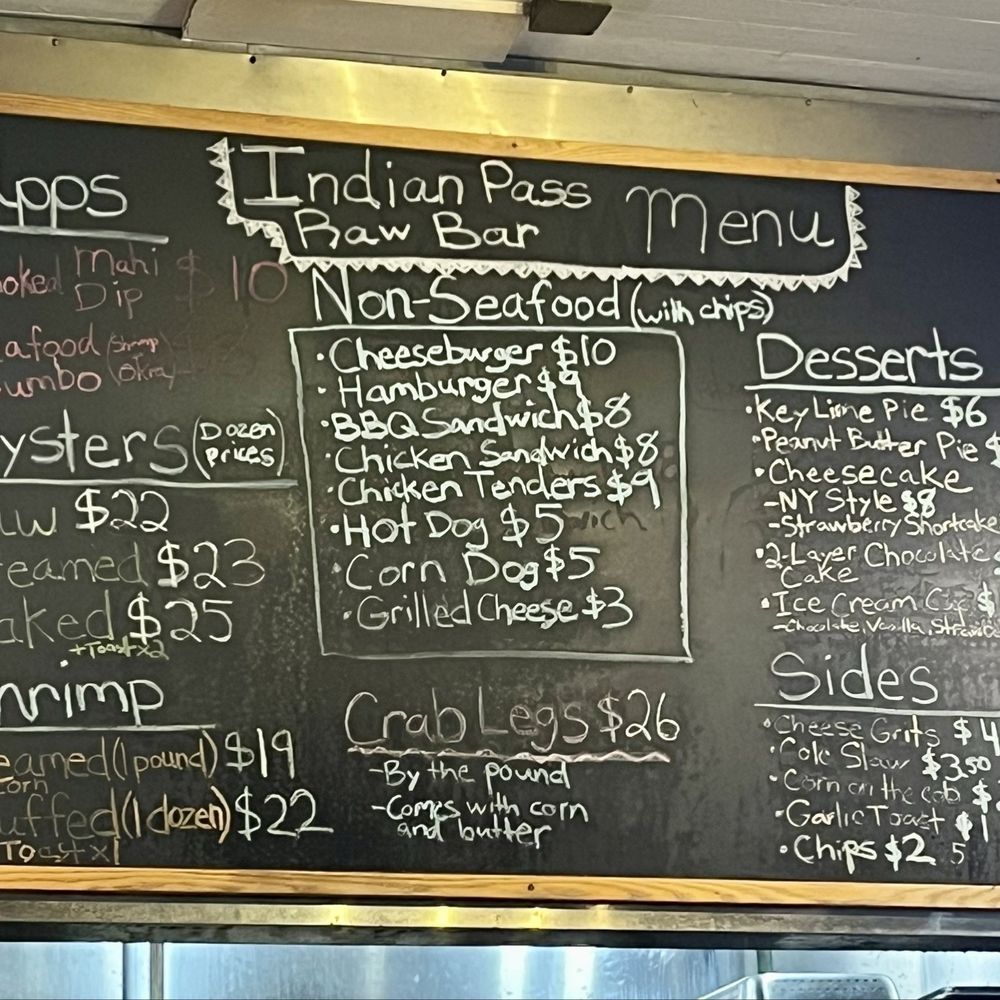 Indian Pass
Raw Bar
Menu
pps
oked Mahi
Dip $10
afood (Shrimp
umbo (Okra)
ysters (Dozen
Prices)
aw $22
eamed $23
aked $25
+Toast x2
hrimp
eamed (1 pound) $19
corn
uffed (1 dozen) $22
Toast x1
Non-Seafood (with chips)
·Cheeseburger $10
·Hamburger $9
·BBQ Sandwich $8
·Chicken Sandwich $8
·Chicken Tenders $9
·Hot Dog $5
·Corn Dog $5
·Grilled Cheese $3
Crab Legs $26
-By the pound
-Comes with corn
and butter
Desserts
·Key Lime Pie $6
·Peanut Butter Pie $
·Cheesecake
-NY Style $8
-Strawberry Shortcake
·2-Layer Chocolate
Cake
·Ice Cream Cup $
-Chocolate, Vanilla,
Sides
·Cheese Grits $4
·Cole Slaw $3.50
·Corn on the cob $
·Garlic Toast $1
·Chips $2